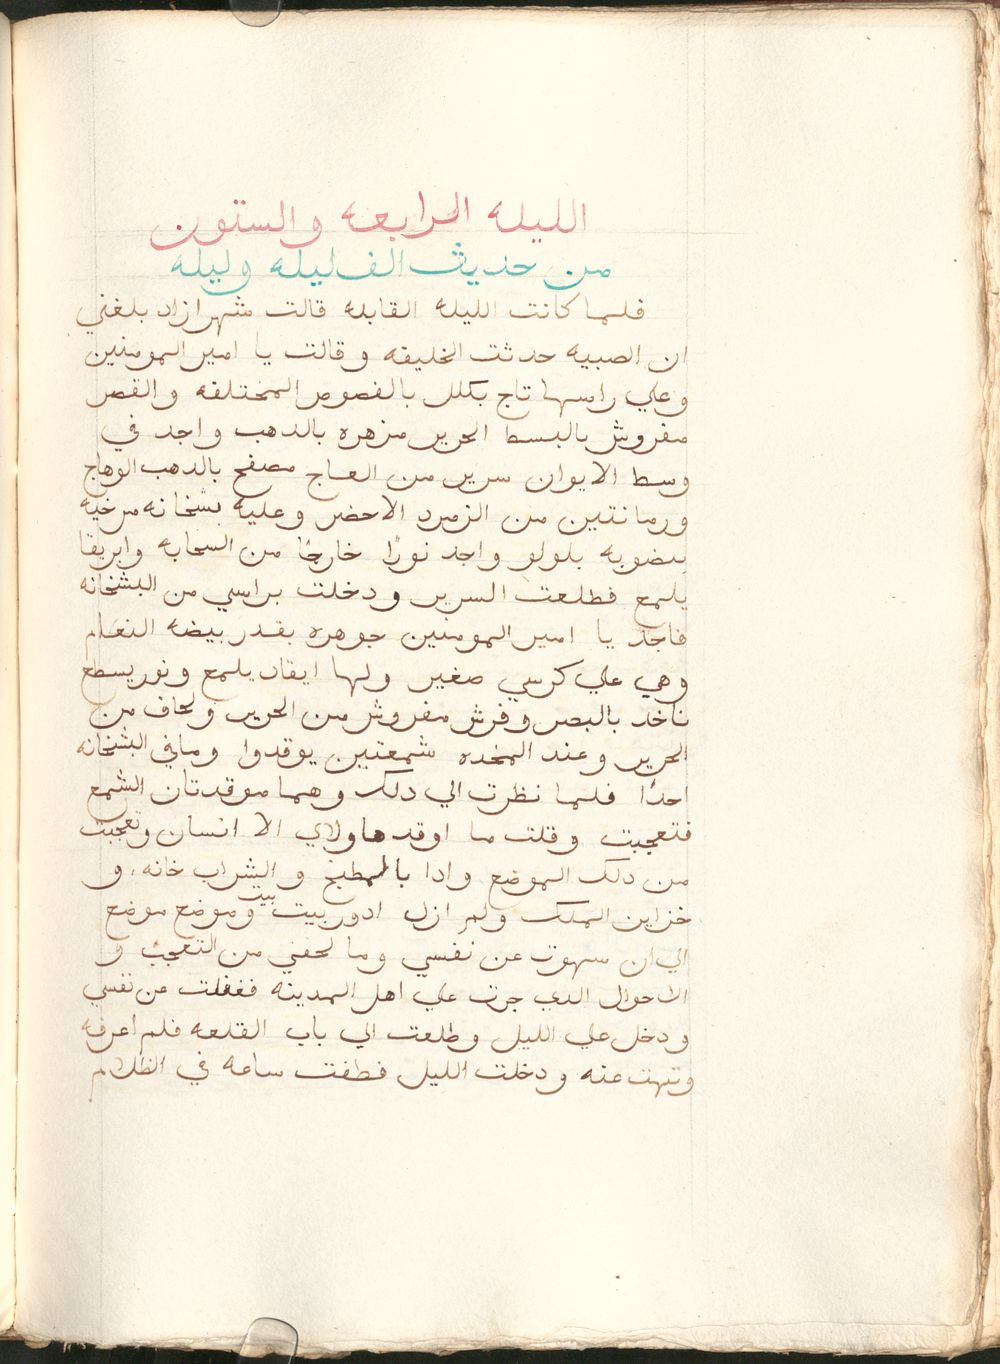 الليله الرابعه والستون
من حديث الف ليله وليله
فلما كانت الليله القابله قالت شهرازاد بلغني
ان الصبيه حدثت الخليفه وقالت يا امير المومنين
وعلي راسها تاج بكلل بالفصوص المختلفه والقصر
مفروش بالبسط الحرير مزهره بالدهب واجد في
وسط الايوان سرير من العاج مصفح بالدهب الوهاج
ورمانتين من الزمرد الاحضر وعليه بشخانه مرخيه
مضوبه بلولو واجد نورًا خارجًا من السحابه وابريقا
يلمع فطلعت السرير ودخلت براسي من البشخانه
فاجد يا امير المومنين جوهره بقدر بيضه النعام
وهي علي كرسي صغير ولها ايقاد يلمع ونور يسطع
ناخد بالبصر وفرش مفروش من الحرير ولحاف من
الحرير وعند المخده شمعتين يوقدوا وما في البشخانه
احدًا فلما نظرت الي دلك وهما موقدتان الشمع
فتعجبت وقلت ما اوقد هاولاي الا انسان وتعجبت
من دلك الموضع وادا بالمطبخ والشراب خانه، و
خزاين الملك ولم ازل ادور بيت بيت وموضع موضع
الي ان سهوت عن نفسي وما لحقني من التعجب و
الاحوال الدي جرت علي اهل المدينه فغفلت عن نفسي
ودخل علي الليل وطلعت الي باب القلعه فلم اعرفه
وتهت عنه ودخلت الليل فطفت ساعه في الظلام